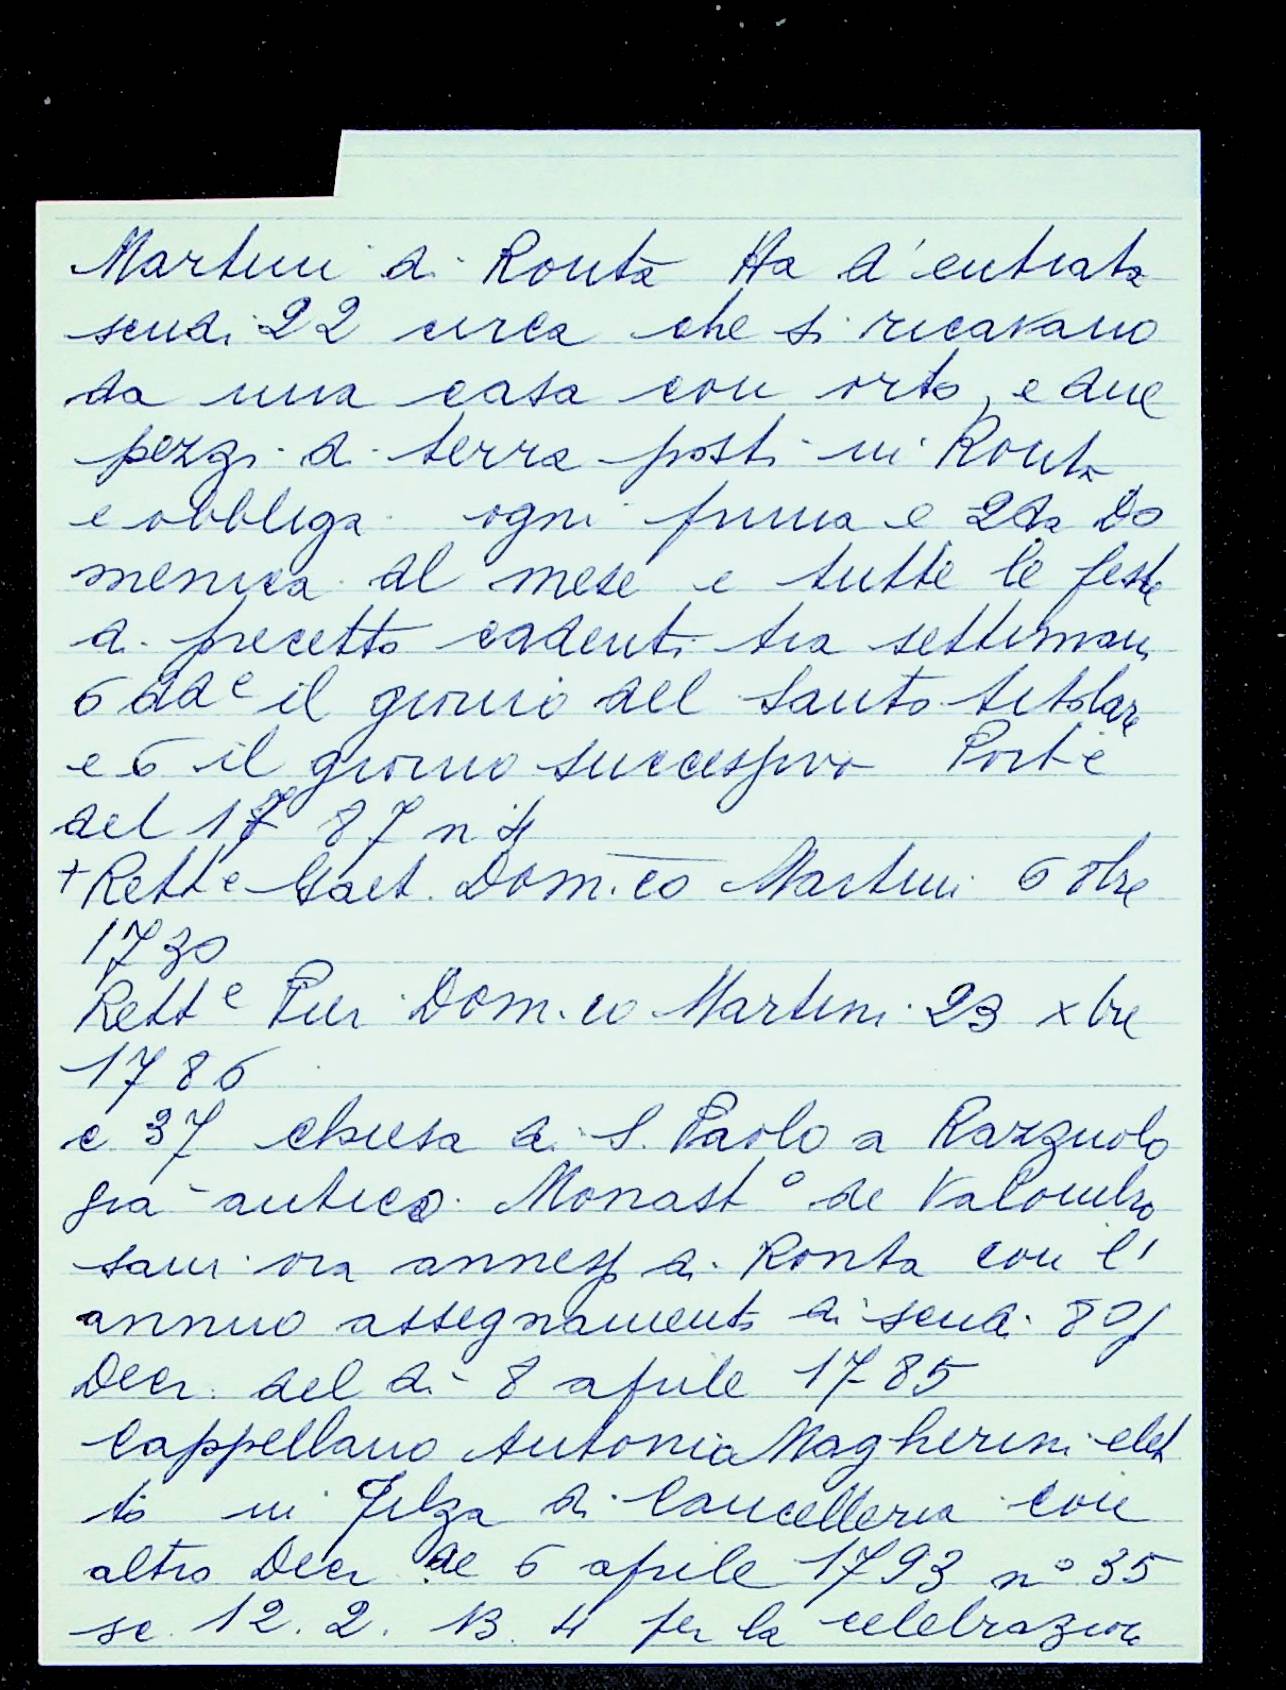 Martini di Ronta Ha d'entrata
scudi 22 circa che si ricavano
da una casa con orto, e due
pezzi di terra posti in Ronta
e obbliga ogni prima e 2da Do
menica al mese e tutte le feste
di precetto cadenti tra settiman
6 dde il giorno del Santo titolare
e 6 il giorno successivo Port e
del 1787 n 4
+ Rett e Gaet. Dom.co Martini 6 8bre
1730
Rett e Pier Dom.co Martini 23 xbre
1786
c 37 chiesa di S. Paolo a Razzuolo
già antico Monast° de Valombro
sani ora annessa di Ronta con l'
annuo assegnamento di scudi 80
Decr. del dì 8 aprile 1785
Cappellano Antonio Magherini elet
to in filza di Cancelleria con
altro Decr de 6 aprile 1793 n° 35
sc. 12. 2. 13. 4 per la celebrazione